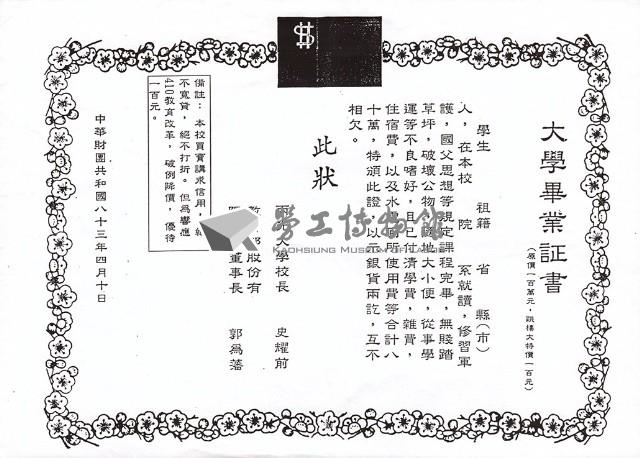 大學畢業証書
(原價一百萬元，跳樓大特價一百元)
學生　祖籍　省　縣(市)
人，在本校　院　系就讀，修習軍
護，國父思想等規定課程完畢，無賤踏
草坪，破壞公物，隨地大小便，從事學
運等不良嗜好，且已付清學費，雜費，
住宿費，以及水電廁所使用費等合計八
十萬，特頒此證，以示銀貨兩訖，互不
相欠。
此狀
大學校長　史耀前
股份有
董事長　郭為藩
備註：本校買賣講求信用，
不寬貸，絕不打折。但為響應
410教育改革，破例降價，優待
一百元。
中華財團共和國八十三年四月十日
勞工博物館
KAOHSIUNG MUSEUM OF LABOR